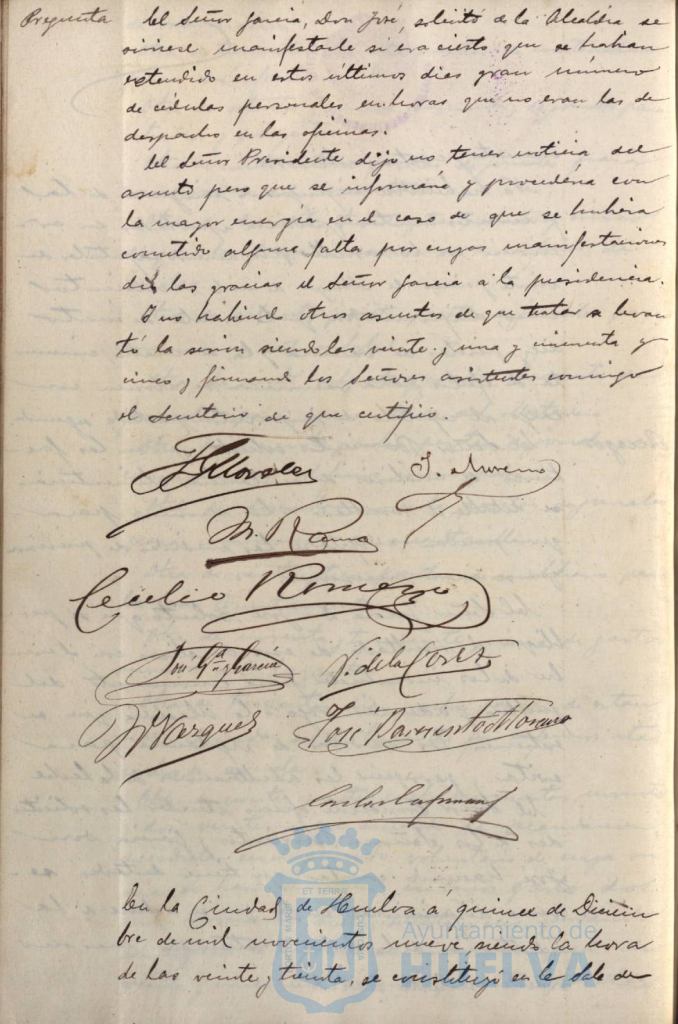 Pregunta
El Señor Garcia, Don José, solicitó de la Alcaldía se
sirviese manifestarle si era cierto que se habian
estendido en estos últimos dias gran número
de cédulas personales en horas que no eran las de
despacho en las oficinas.
El Señor Presidente dijo no tener noticia del
asunto pero que se informaría y procedería con
la mayor energía en el caso de que se hubiera
cometido alguna falta por cuyas manifestaciones
dió las gracias el Señor Garcia á la presidencia.
Y no habiendo otros asuntos de que tratar se levan
tó la sesion siendo las veinte y una y cincuenta y
cinco y firmando los Señores asistentes conmigo
el Secretario de que certifico.
J. Moreno
Cecilio Romero
José Gª y García
V. de la Corte
Vazquez
José Barsiento Moreno
En la Ciudad de Huelva á quince de Diciem
bre de mil novecientos nueve siendo la hora
de las veinte y treinta, se constituyó en la Sala de
Ayuntamiento de
HUELVA